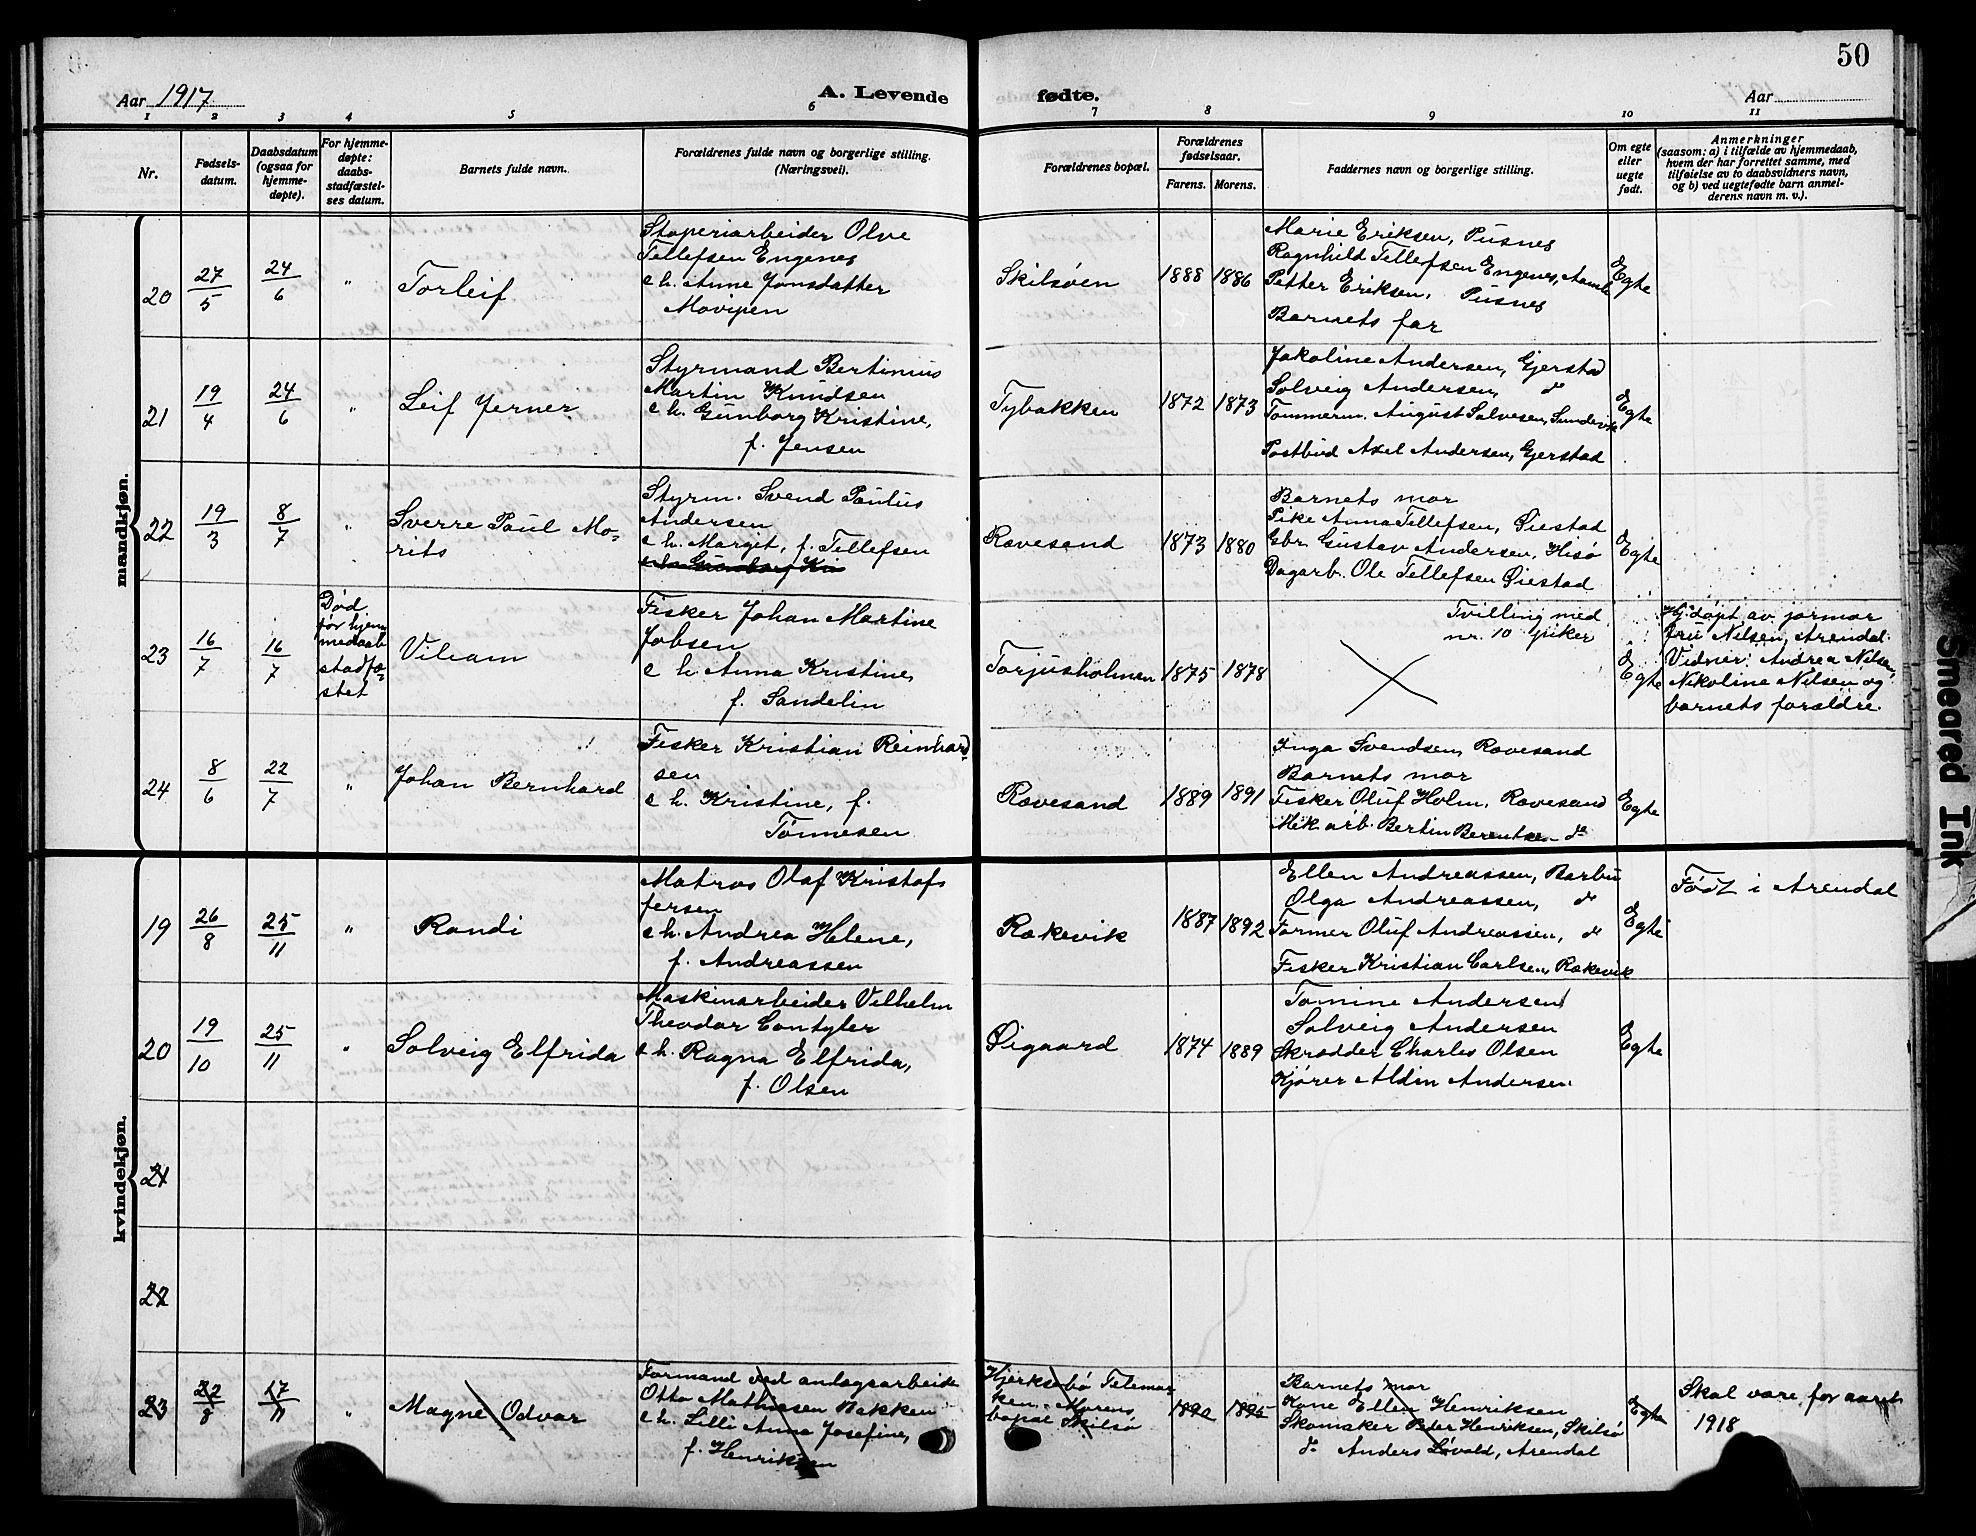 50
Aar 1917.
A. Levende fødte.
Aar
1 2 3 4 5 6 7 8 9 10 11
Nr.
Fødsels-
datum.
Daabsdatum
(ogsaa for
hjemme-
døpte).
For hjemme-
døpte:
daabs-
stadfæstel-
ses datum.
Barnets fulde navn.
Forældrenes fulde navn og borgerlige stilling.
(Næringsvei).
Forældrenes bopæl.
Forældrenes
fødselsaar.
Farens. Morens.
Faddernes navn og borgerlige stilling.
Om egte
eller
uegte
født.
Anmerkninger
(saasom: a) i tilfælde av hjemmedaab,
hvem der har forrettet samme, med
tilføielse av to daabsvidners navn,
og b) ved uegtefødte barn anmel-
derens navn m. v.).
mandkjøn.
20 27/5 24/6 " Torleif
Støperiarbeider Olve
Tellefsen Engenes
e h. Anne Jonsdatter
Movipen
Skilsøen 1888 1886
Marie Eriksen, Pusnes
Ragnhild Tellefsen Engenes,
Petter Eriksen, Pusnes
Barnets far
Egte
21 19/4 24/6 " Leif Jerner
Styrmand Bertinius
Martin Knudsen
e h. Gunborg Kristine,
f. Jensen
Tybakken 1872 1873
Jakoline Andersen, Gjerstad
Solveig Andersen, do
Tømmerm. August Salvesen, Sundevik
Postbud Axel Andersen, Gjerstad
Egte
22 19/3 8/7 " Sverre Paul Mo-
rits
Styrm. Svend Paulus
Andersen
e h. Margit, f. Tellefsen
Rævesand 1873 1880
Barnets mor
Pike Anna Tellefsen, Øiestad
Gbr. Gustav Andersen, Hisø
Dagarb. Ole Tellefsen Øiestad
Egte
23 16/7 16/7
Død
før hjem
medaab
stadfæ-
stet
Viliam
Fisker Johan Martine
Jobsen
e h. Anna Kristine,
f. Sandelin
Torjusholmen 1875 1878
Tvilling med
nr. 10 piker
Egte
Hj. døpt av jormor
fru Nilsen, Arendal.
Vidner: Andrea Nilsen,
Nikoline Nilsen og
barnets forældre.
24 8/6 22/7 " Johan Bernhard
Fisker Kristian Reinhard-
sen
e h. Kristine, f.
Tønnesen
Rævesand 1889 1891
Inga Svendsen, Rævesand
Barnets mor
Fisker Oluf Holm, Rævesand
Mek. arb. Bertin Berentsen do
Egte
kvindekjøn.
19 26/8 25/11 " Randi
Matros Olaf Kristof-
fersen
e h. Andrea Helene,
f. Andreassen
Rækevik 1887 1892
Ellen Andreassen, Barbu
Olga Andreassen, do
Former Oluf Andreassen, do
Fisker Kristian Carlsen, Rækevik
Egte
Født i Arendal
20 19/10 25/11 " Solveig Elfrida
Maskinarbeider Vilhelm
Theodor Contyler
e h. Ragna Elfrida,
f. Olsen
Øigaard 1874 1889
Tomine Andersen
Solveig Andersen
Skrædder Charles Olsen
Kjører Aldin Andersen
Egte
21
22
23 22/8 17/11 " Magne Odvar
Formand ved anlægsarbeide
Otto Mathissen Bakken
e h. Lilli Anna Josefine,
f. Henriksen
Hjerksebø Telemar-
ken. Morens
bopæl Skilsø
1890 1895
Barnets mor
Kone Ellen Henriksen
Skomaker Peder Henriksen, Skilsø
do Anders Løvold, Arendal
Egte
Skal være for aaret
1918
Smeared Ink